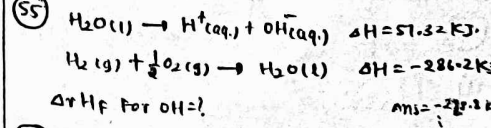 55 H₂O(l) → H⁺(aq.) + OH⁻(aq.) ΔH = 57.32 KJ.
H₂(g) + ½O₂(g) → H₂O(l) ΔH = -286.2K
ΔrHF For OH=?
Ans =